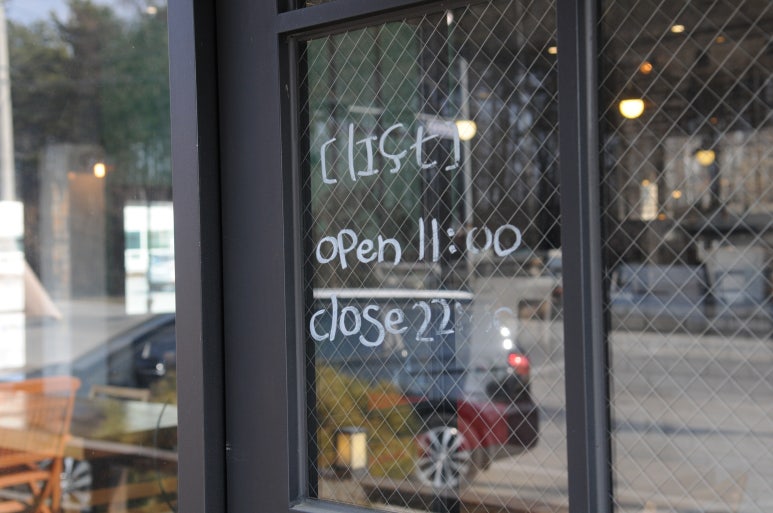 [lɪçt]
open 11:00
close 22:00